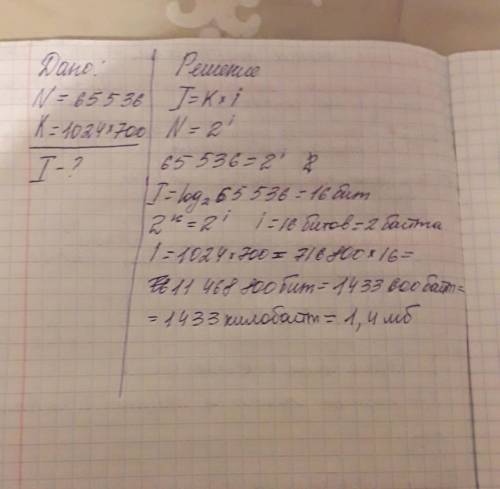 Дано:
N = 65536
K = 1024*700
I - ?
Решение
I = K × i
N = 2^i
65 536 = 2^i
I = log₂ 65 536 = 16 бит
2^16 = 2^i i = 16 битов = 2 байта
I = 1024 × 700 = 716 800 × 16 =
11 468 800 бит = 1433 600 байт =
= 1433 килобайт = 1,4 мб